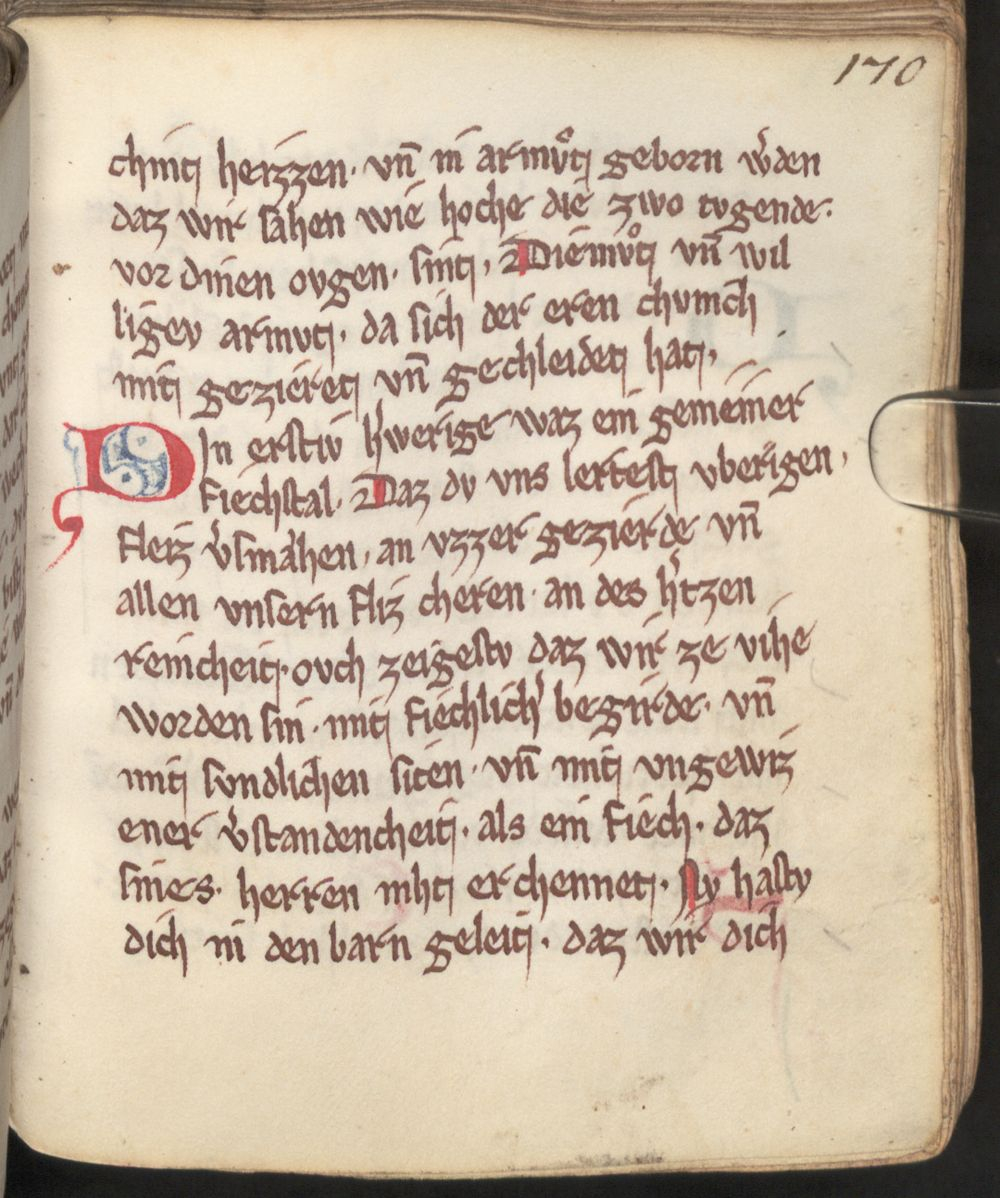 170
chint heizzen · vn̄ in armvͦt geborn w̓den
daz wir sahen wie hoche die zwo tvgende·
vor dinen ovgen · sint · Diemvͦt vn̄ wil
ligev armvt · da sich der eren chvnich
mit gezieret vn̄ gechleidet hat ·
DIn erstiv h̓werige waz ein gemeiner
Fiechstal · Daz dv vns lertest vberigen ·
Fleiz v̓smahen · an vzzer gezierde vn̄
allen vnsern Fliz cheren · an des h̓tzen
reincheit · ovch zeigestv daz wir ze vihe
worden sin · mit Fiechlich̓ begirde · vn̄
mit svndlichen siten · vn̄ mit vngewiz
ener v̓standencheit · als ein Fiech · daz
sines · herren niht erchennet · Nv hastv
dich in den barn geleit · daz wir dich